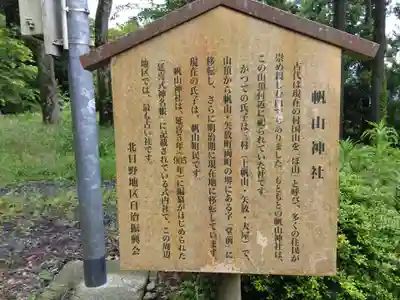 帆山神社
古代は現在の村国山を「ほ山」と呼び、多くの住民が
崇め親しむ
もともとの帆山神社は、
この山頂付近に祀られていた社です。
かつての氏子は三村(上帆山・矢放・大屋)で、
山頂から帆山・矢放両町の堺にある字「堂前」に
移転し、さらに明治期に現在地に移転しています。
現在の氏子は、帆山町民です。
帆山神社は、延喜5年(905年)に編纂がはじめられた
「延喜式神名帳」に記載されている式内社で、この周辺
地区では、最も古い社です。
北日野地区自治振興会